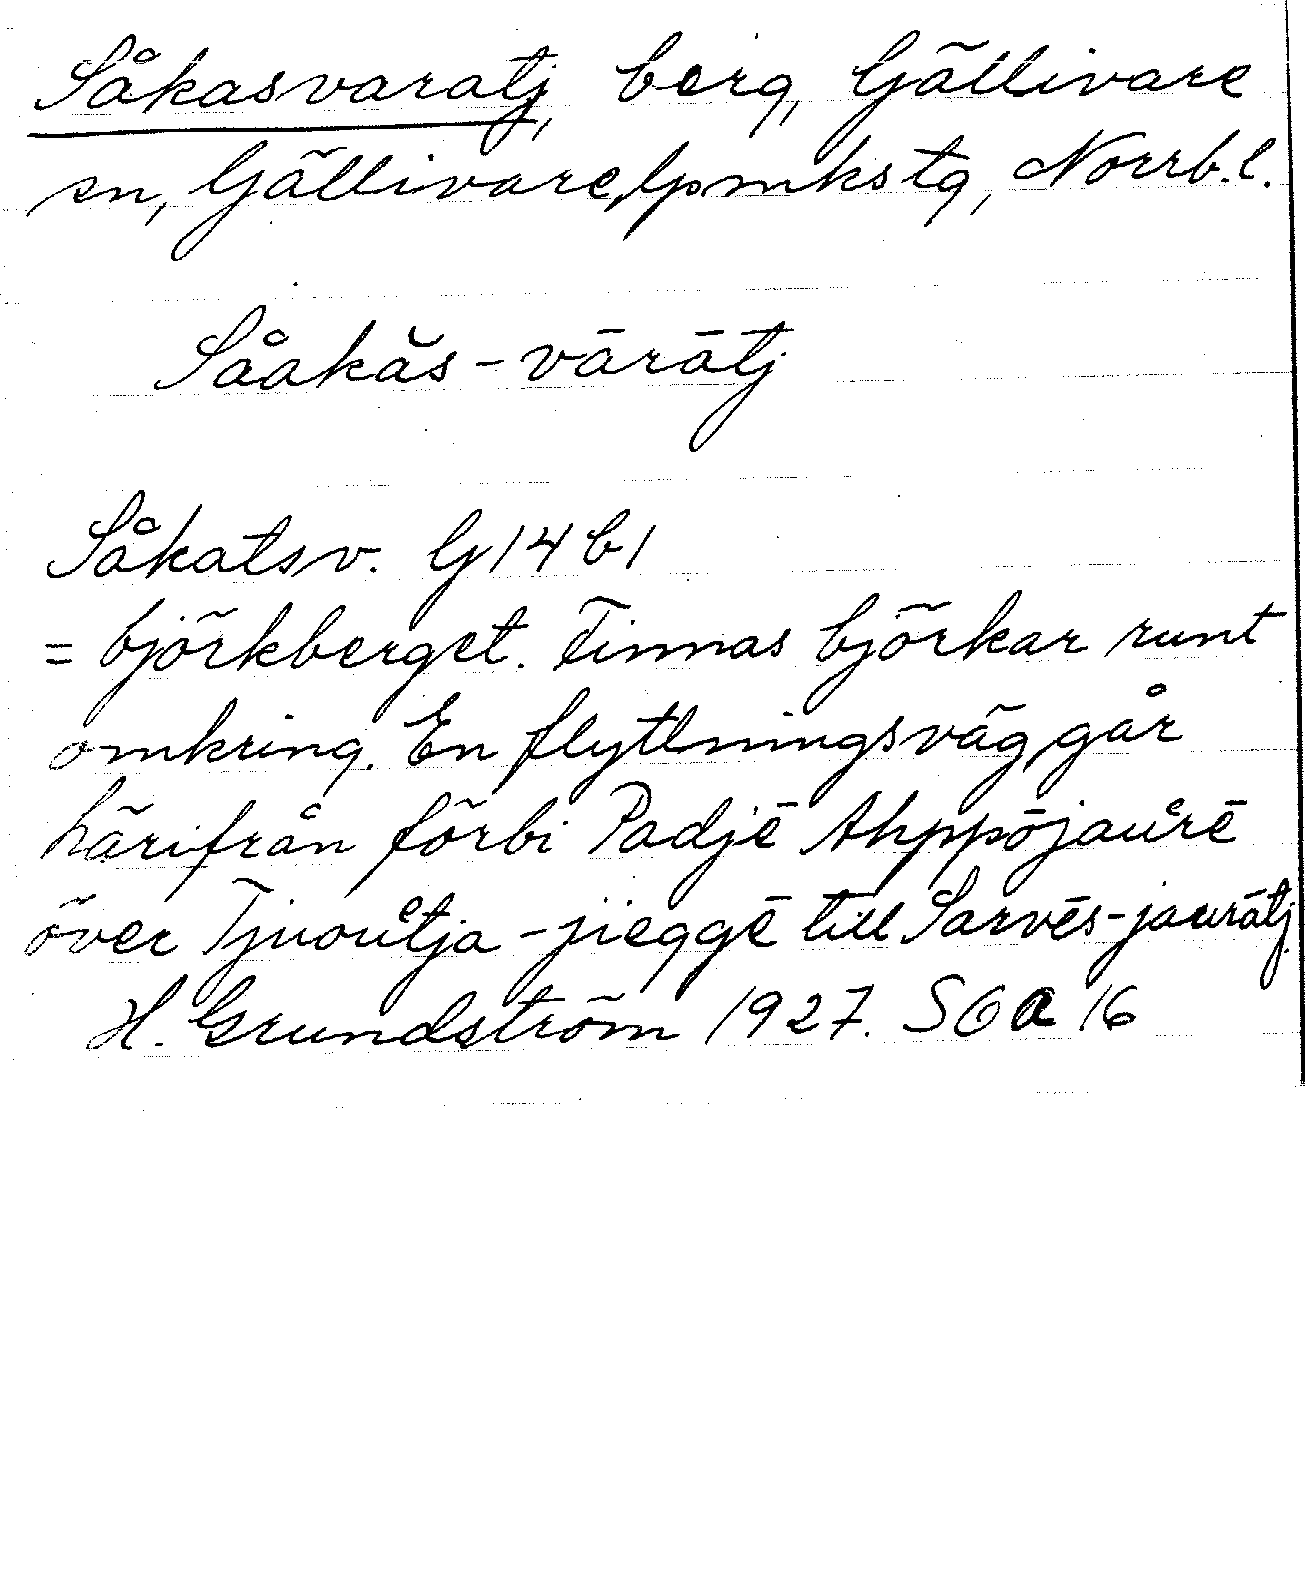 Såkasvaratj, berg, Gällivare
sn, Gällivare lpmkstg, Norrb.l.
Såakăs-vārātj
Såkatsv. G14b1
= björkberget. Finnas björkar runt
omkring. En flyttningsväg går
härifrån förbi Padjē Ahppōjaurē
över Tjuoutja-jieggē till Sarvēs-jaurātj.
H. Grundström 1927. S6a16